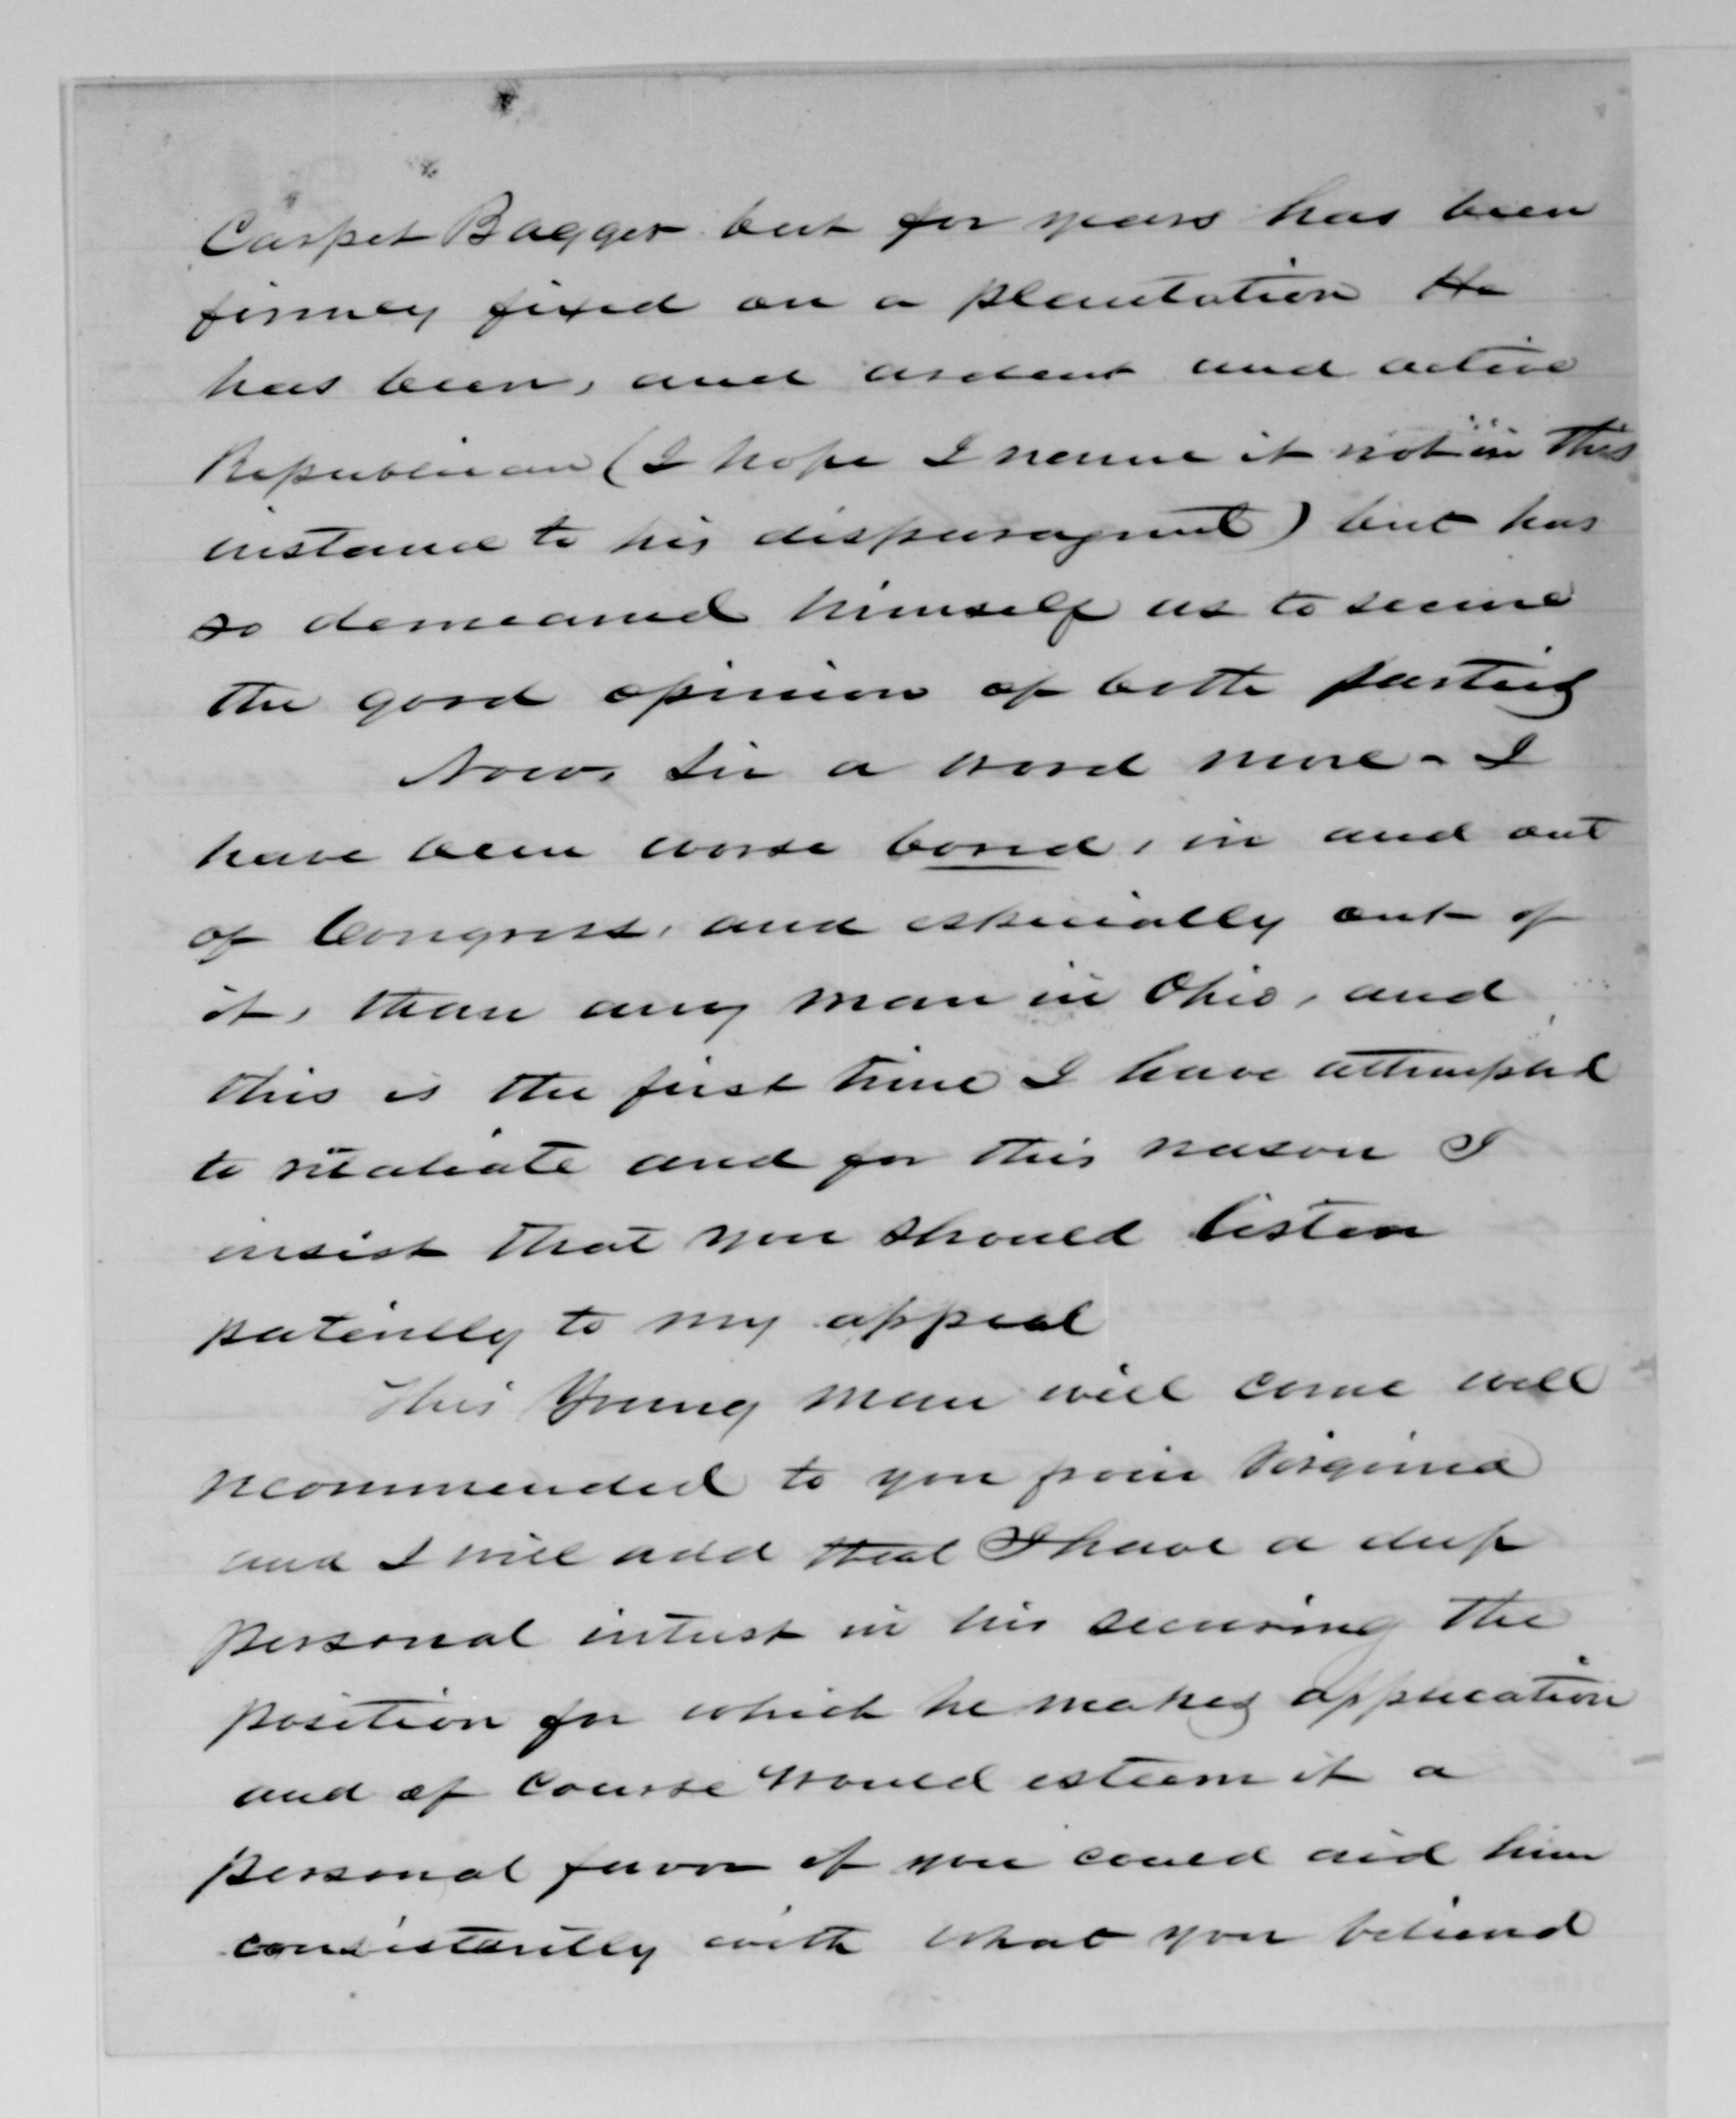 Carpet Bagger but for years has been
firmly fixed on a plantation He
has been, and ardent and active
Republican (I hope I name it not in this
instance to his disparagment) but has
so demeaned himself as to secure
the good opinion of both parties
Now Sir a word more - I
have been worse bored, in and out
of Congress, and especially out of
it, than any man in Ohio, and
this is the first time I have attempted
to retaliate and for this reason I
insist that you should listen
patiently to my appeal
This Young man will come well
recommended to you from Virginia
and I will add that I have a deep
personal interest in his securing the
position for which he makes application
and of course would esteem it a
personal favor if you could aid him
consistantly with what you believed